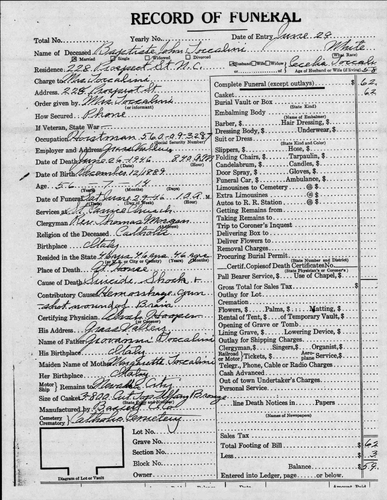 RECORD OF FUNERAL
Total No. Yearly No. Date of Entry June 28
Name of Deceased Baptiste John Toccalini White
Married Single Widowed Divorced
Residence 228 Prospect St. N.C. Husband Wife Widow Cecelia Toccalini
Charge to Mrs. Toccalini Age of Husband or Wife (if living) 58
Address 228 Prospect St.
Order given by Mrs. Toccalini
How Secured Phone
If Veteran, State War
Occupation 560-09-3287
(Social Security Number)
Employer and Address Grass Valley
Date of Death June 26 1946
Date of Birth December 12 1889
Age 56
Date of Funeral Sat June 29-46 10 A.M.
Services at Church
Clergyman Rev. Thomas
Religion of Deceased Catholic
Birthplace Italy
Resided in the State 46
Place of Death At Home
Cause of Death Suicide Shock &
Contributory Causes Hemorrhage gun
shot wound of Brain
Certifying Physician
His Address Grass Valley
Name of Father Giovanni Toccalini
His Birthplace Italy
Maiden Name of Mother Toccalini
Her Birthplace Italy
Motor Ship Remains to Nevada City
Size of Casket
Manufactured by
Cemetery Crematory Catholic Cemetery
Lot No.
Grave No.
Section No.
Block No.
Owner
Diagram of Lot or Vault
Complete Funeral (except outlays) $ 62
Casket 62
Burial Vault or Box
(State Kind)
Embalming Body
Barber, $ Hair Dressing, $
Dressing Body, $ Underwear, $
Suit or Dress
(State Kind and Color)
Slippers
Folding Chairs, $ Tarpaulin, $
Candelabrum, $ Candles, $
Door Spray, $ Gloves, $
Funeral Car, $ Ambulance, $
Limousines to Cemetery @ $
Extra Limousines @ $
Autos to R. R. Station @ $
Getting Remains from
Taking Remains to
Trip to Coroner's Inquest
Delivering Box to
Deliver Flowers to
Removal Charges
Procuring Burial Permit
(State Number and District)
Certif. Copies of Death Certificates, $
(State Physician's or Coroner's)
Pall Bearer Service, $ Use of Chapel, $
Gross Total for Sales Tax $
Outlay for Lot
Cremation
Flowers, $ Palms, $ Matting, $
Rental of Tent, $ of Temporary Vault, $
Opening of Grave or Tomb
Lining Grave, $ Lowering Device, $
Outlay for Shipping Charges
Clergyman, $ Singers, $ Organist, $
Railroad or Motor Tickets, $ Aeroplane Service, $
Telegr., Phone, Cable or Radio Charges
Cash Advanced
Out of town Undertaker's Charges
Personal Service
line Death Notices in Papers
(Names of Newspapers)
Sales Tax
Total Footing of Bill $ 62
Less $ 3
Balance $ 59
Entered into Ledger, page or below.